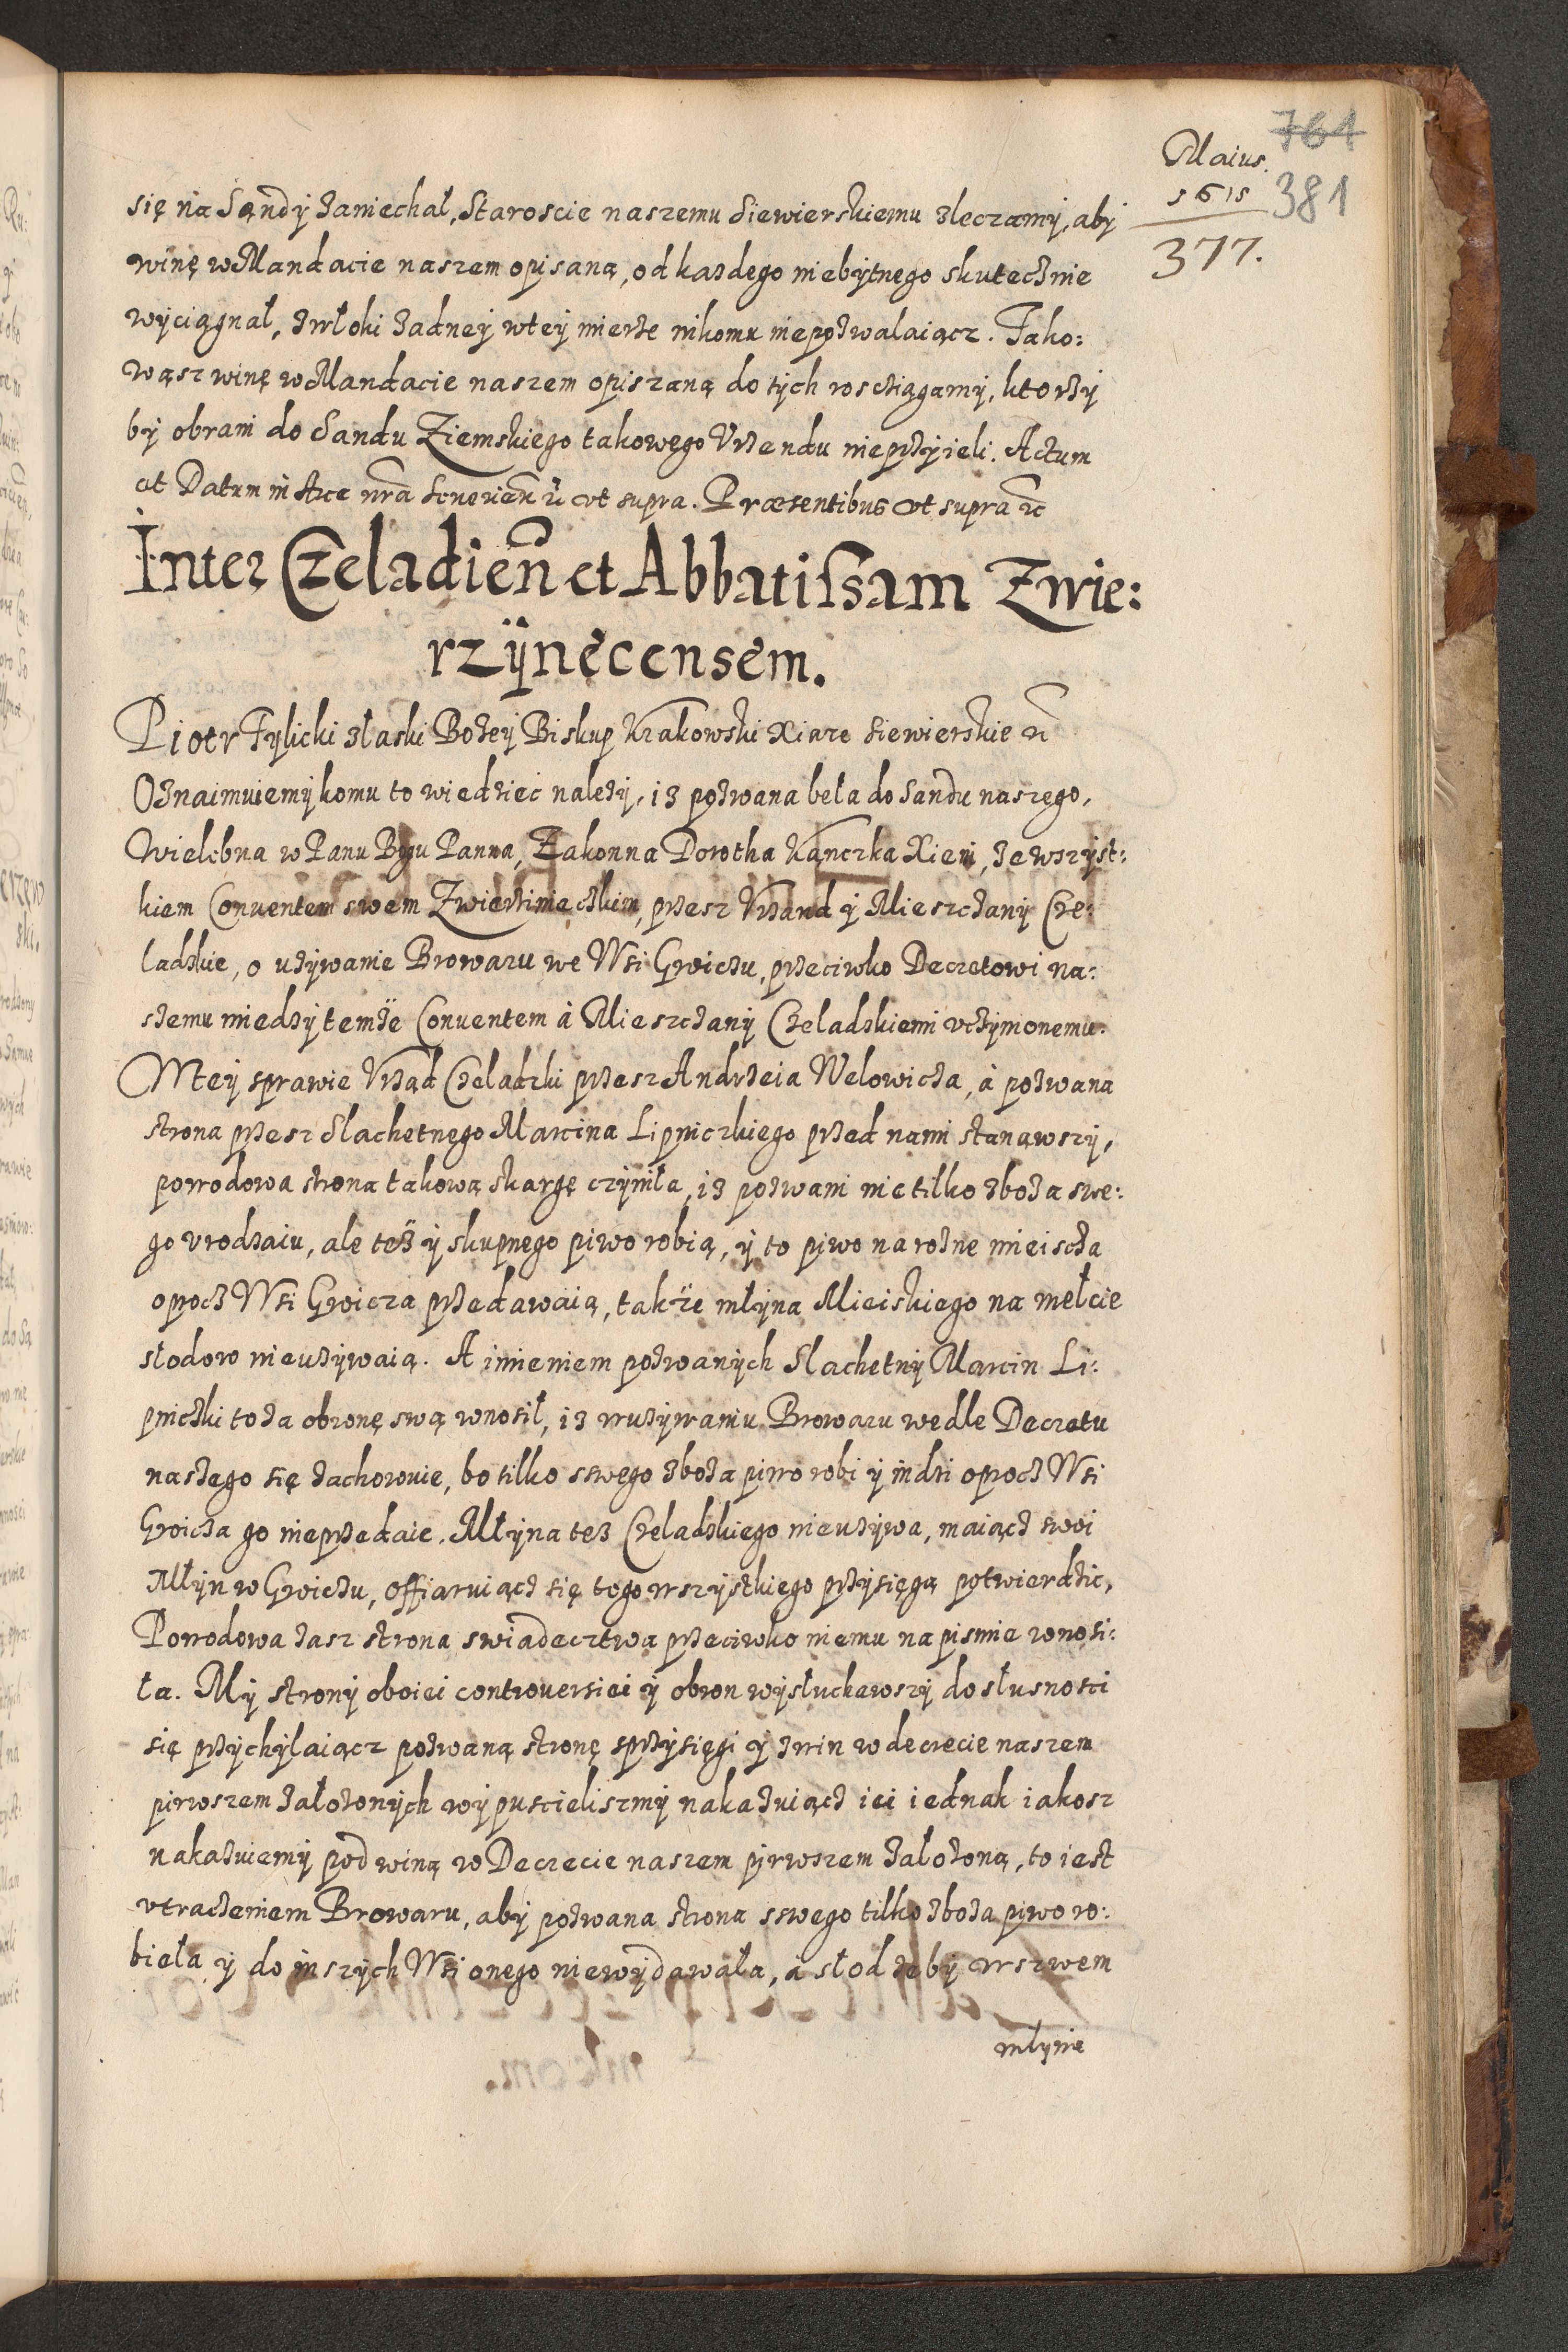 Maius. 764
1615 381
377.
się na Sandy zaniechał, Staroscie naszemu Siewierskiemu zleczamy, aby
winę w Mandacie naszem opisaną, od kazdego niebytnego skutecznie
wyciągnał, zwłoki zadney wtey mierze nikomu niepozwalaiącz. Tako:
wąsz winę w Mandacie naszem opiszaną do tych rosciągamy, ktorzy
by obrani do Sandu Ziemskiego takowego Vrzendu nieprzyieli. Actum
et Datum in Arce nra Seuerien ut supra. Præsentibus ut supra
Inter Czeladien et Abbatissam Zwie:
rzÿnęcensem.
Piotr Tylicki z łaski Bozey Biskup Krakowski Xiąze Siewierskie
Oznaimuiemy komu to wiedziec nalezy, iz pozwana beła do Sandu naszego,
Wielebna w Panu Bogu Panna, Zakonna Dorotha Kanczka Xieni, ze wszyst:
kiem Conuentem swem Zwierzinieczkim, przesz Vrzand y Mieszczany Cze:
ladzkie, o uzywanie Browaru we Wsi Groiczu, przeciwko Decretowi na:
szemu miedzy temze Conuentem à Mieszczany Czeladzkiemi vczynionemu.
Wtey sprawie Vrząd Czeladzki przesz Andrzeia Welowicza, à pozwana
strona przesz Slachetnego Marcina Lipniczkiego przed nami stanąwszy,
powodowa strona takową skargę czyniła, iz pozwani nie tilko zboza swe:
go vrodzaiu, ale tez y skupnego piwo robią, y to piwo na rozne mieiscza
oprocz Wsi Groicza przedawaią, takze młyna Mieiskiego na mełcie
słodow nieuzywaią. A imieniem pozwanych Slachetny Marcin Li:
pniczki to za obronę swą wnosił, iz w uzywaniu Browaru wedle Decretu
naszego się zachowuie, bo tilko sswego zboza piwo robi y indzi oprocz Wsi
Groicza go nieprzedaie. Młyna tez Czeladzkiego nieuzywa, maiącz swoi
Młyn w Groiczu, offiaruiącz się tego wszystkiego przysięgą potwierdzic,
Powodowa zasz strona swiadecztwa przeciwko niemu na pismie wnosi:
ła. My strony oboiei controuersiei y obron wysłuchawszy do słusnosci
się przychylaiącz pozwaną stronę sprzysięgi y zwin w decrecie naszem
pirwszem załozonych wypuscielismy nakazuiącz iei iednak iakosz
nakazuiemy pod winą w Decrecie naszem pirwszem załozoną, to iest
vtraceniem Browaru, aby pozwana strona sswego tilko zboza piwo ro:
bieła y do inszych Wsi onego niewydawała, à słod zeby w szwem
młynie